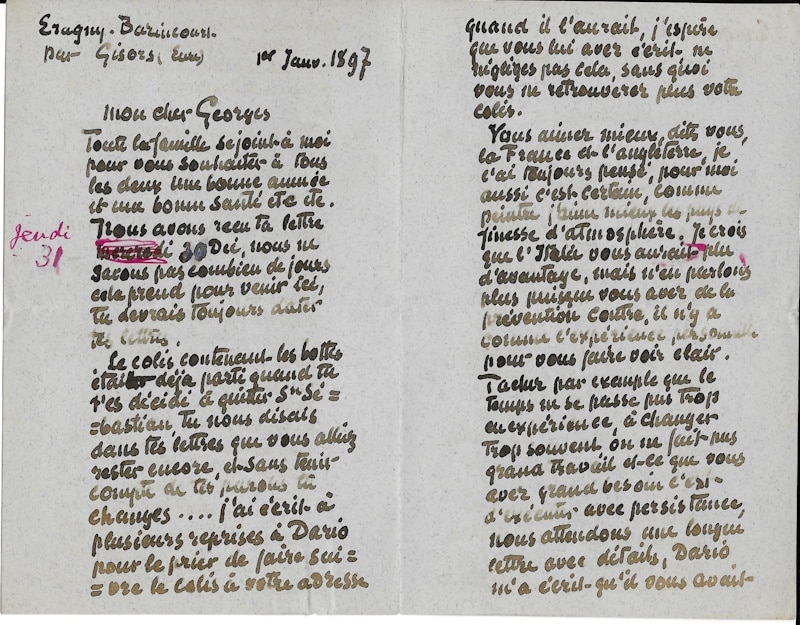 Eragny-Bazincourt
par Gisors (Eure)
1er Janv. 1897
Mon cher Georges
Toute la famille se joint à moi
pour vous souhaiter à tous
les deux une bonne année
et une bonne santé etc etc.
Nous avons recu ta lettre
jeudi
31
mercredi 30 Dec, nous ne
savons pas combien de jours
cela prend pour venir ici,
tu devrais toujours dater
tes lettres.
Le colis contenant les bottes
était déjà parti quand tu
t'es décidé à quitter Sn Sé=
=bastian tu nous disais
dans tes lettres que vous alliez
rester encore, et sans tenir
compte de tes parous tu
changes .... j'ai écrit à
plusieurs reprises à Dario
pour le prier de faire sui=
=vre le colis à votre adresse
quand il l'aurait, j'espère
que vous lui avez écrit ne
négligez pas cela, sans quoi
vous ne retrouverez plus votre
colis.
Vous aimez mieux, dites vous,
la France et l'angleterre, je
l'ai toujours pensé, pour moi
aussi c'est certain, comme
peintre j'aime mieux les pays de
finesse d'atmosphère. Je crois
que l'Italie vous aurait plu
d'avantage, mais n'en parlons
plus puisque vous avez de la
prévention contre, il n'y a
comme l'expérience personnelle
pour vous faire voir clair.
Tachez par exemple que le
temps ne se passe pas trop
en expérience, à changer
trop souvent on ne fait pas
grand travail et ce que vous
avez grand besoin c'est
d'exécuter avec persistance,
nous attendons une longue
lettre avec détails, Dario
m'a écrit qu'il vous avait